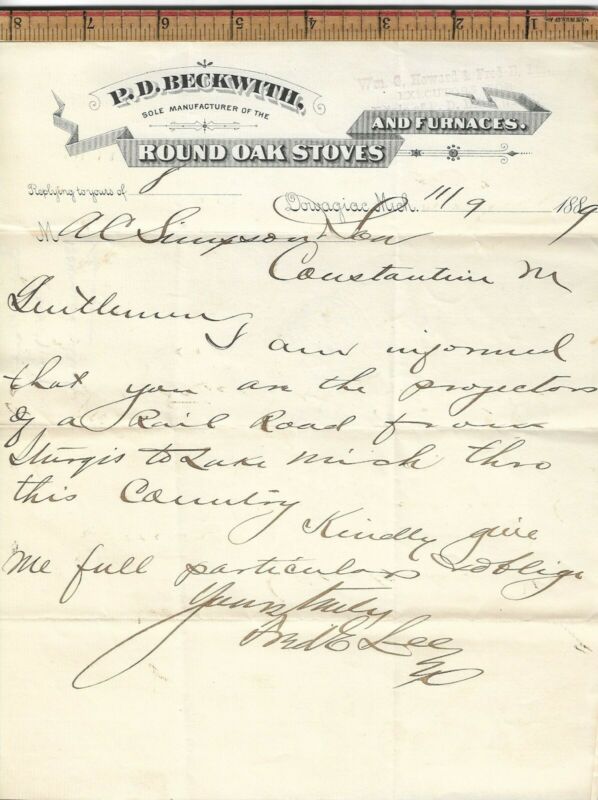 8 7 6 5 4 3 2 1
P. D. BECKWITH,
SOLE MANUFACTURER OF THE
ROUND OAK STOVES
AND FURNACES.
Wm. C. Howard & Fred E. Lee
Replying to yours of 8
Dowagiac, Mich. 11/9 1889
M AC Simpson & Son
Constantine M
Gentlemen
I am informed
that you are the projectors
of a Rail Road from
Sturgis to Lake Mich thro
this Country
Kindly give
me full particulars & oblige
Yours truly
Fred E Lee